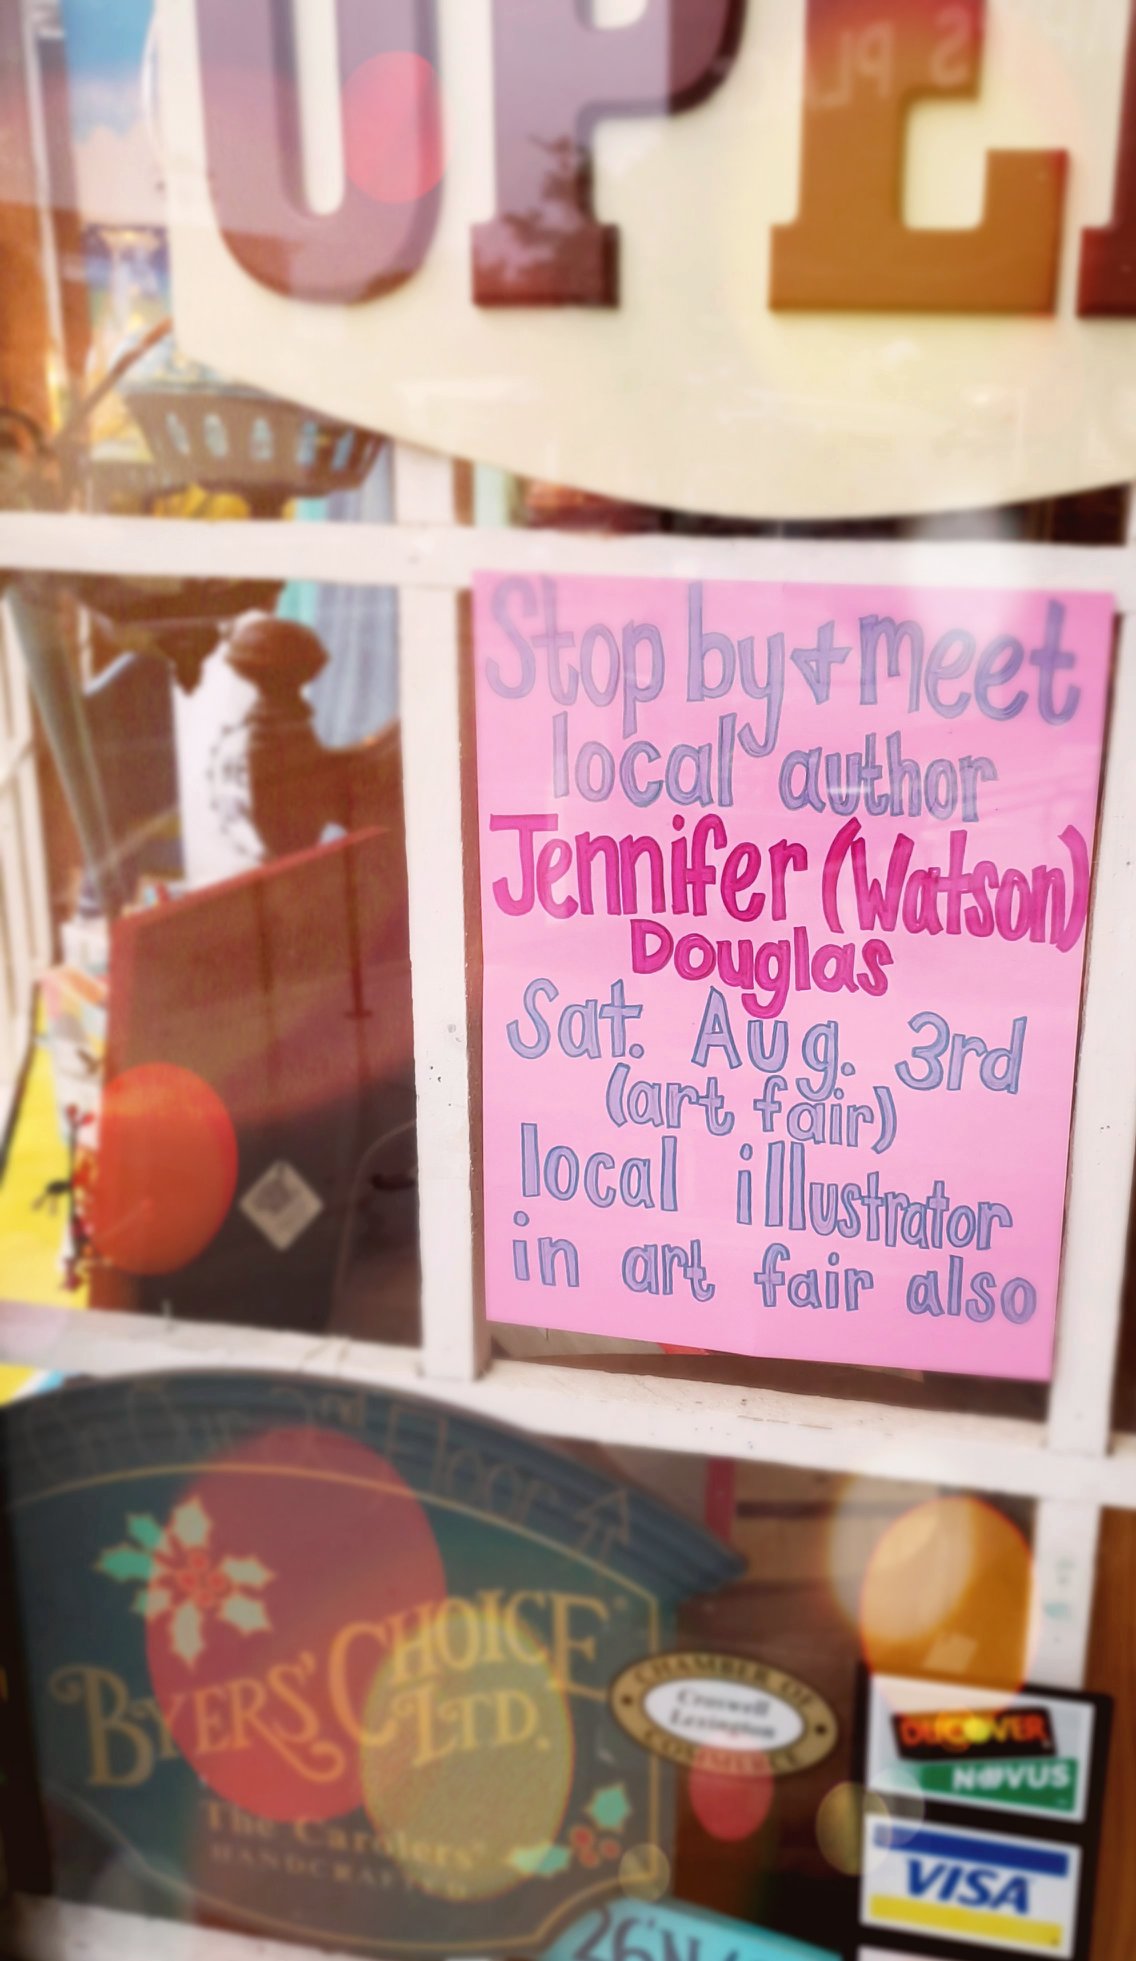 OPE
Stop by + meet
local author
Jennifer (Watson)
Douglas
Sat. Aug. 3rd
(art fair)
local illustrator
in art fair also
3rd Floor
BYERS' CHOICE
LTD.
The Carolers®
HANDCRAFTED
CHAMBER OF
Croswell
Lexington
COMMERCE
DISCOVER
NOVUS
VISA